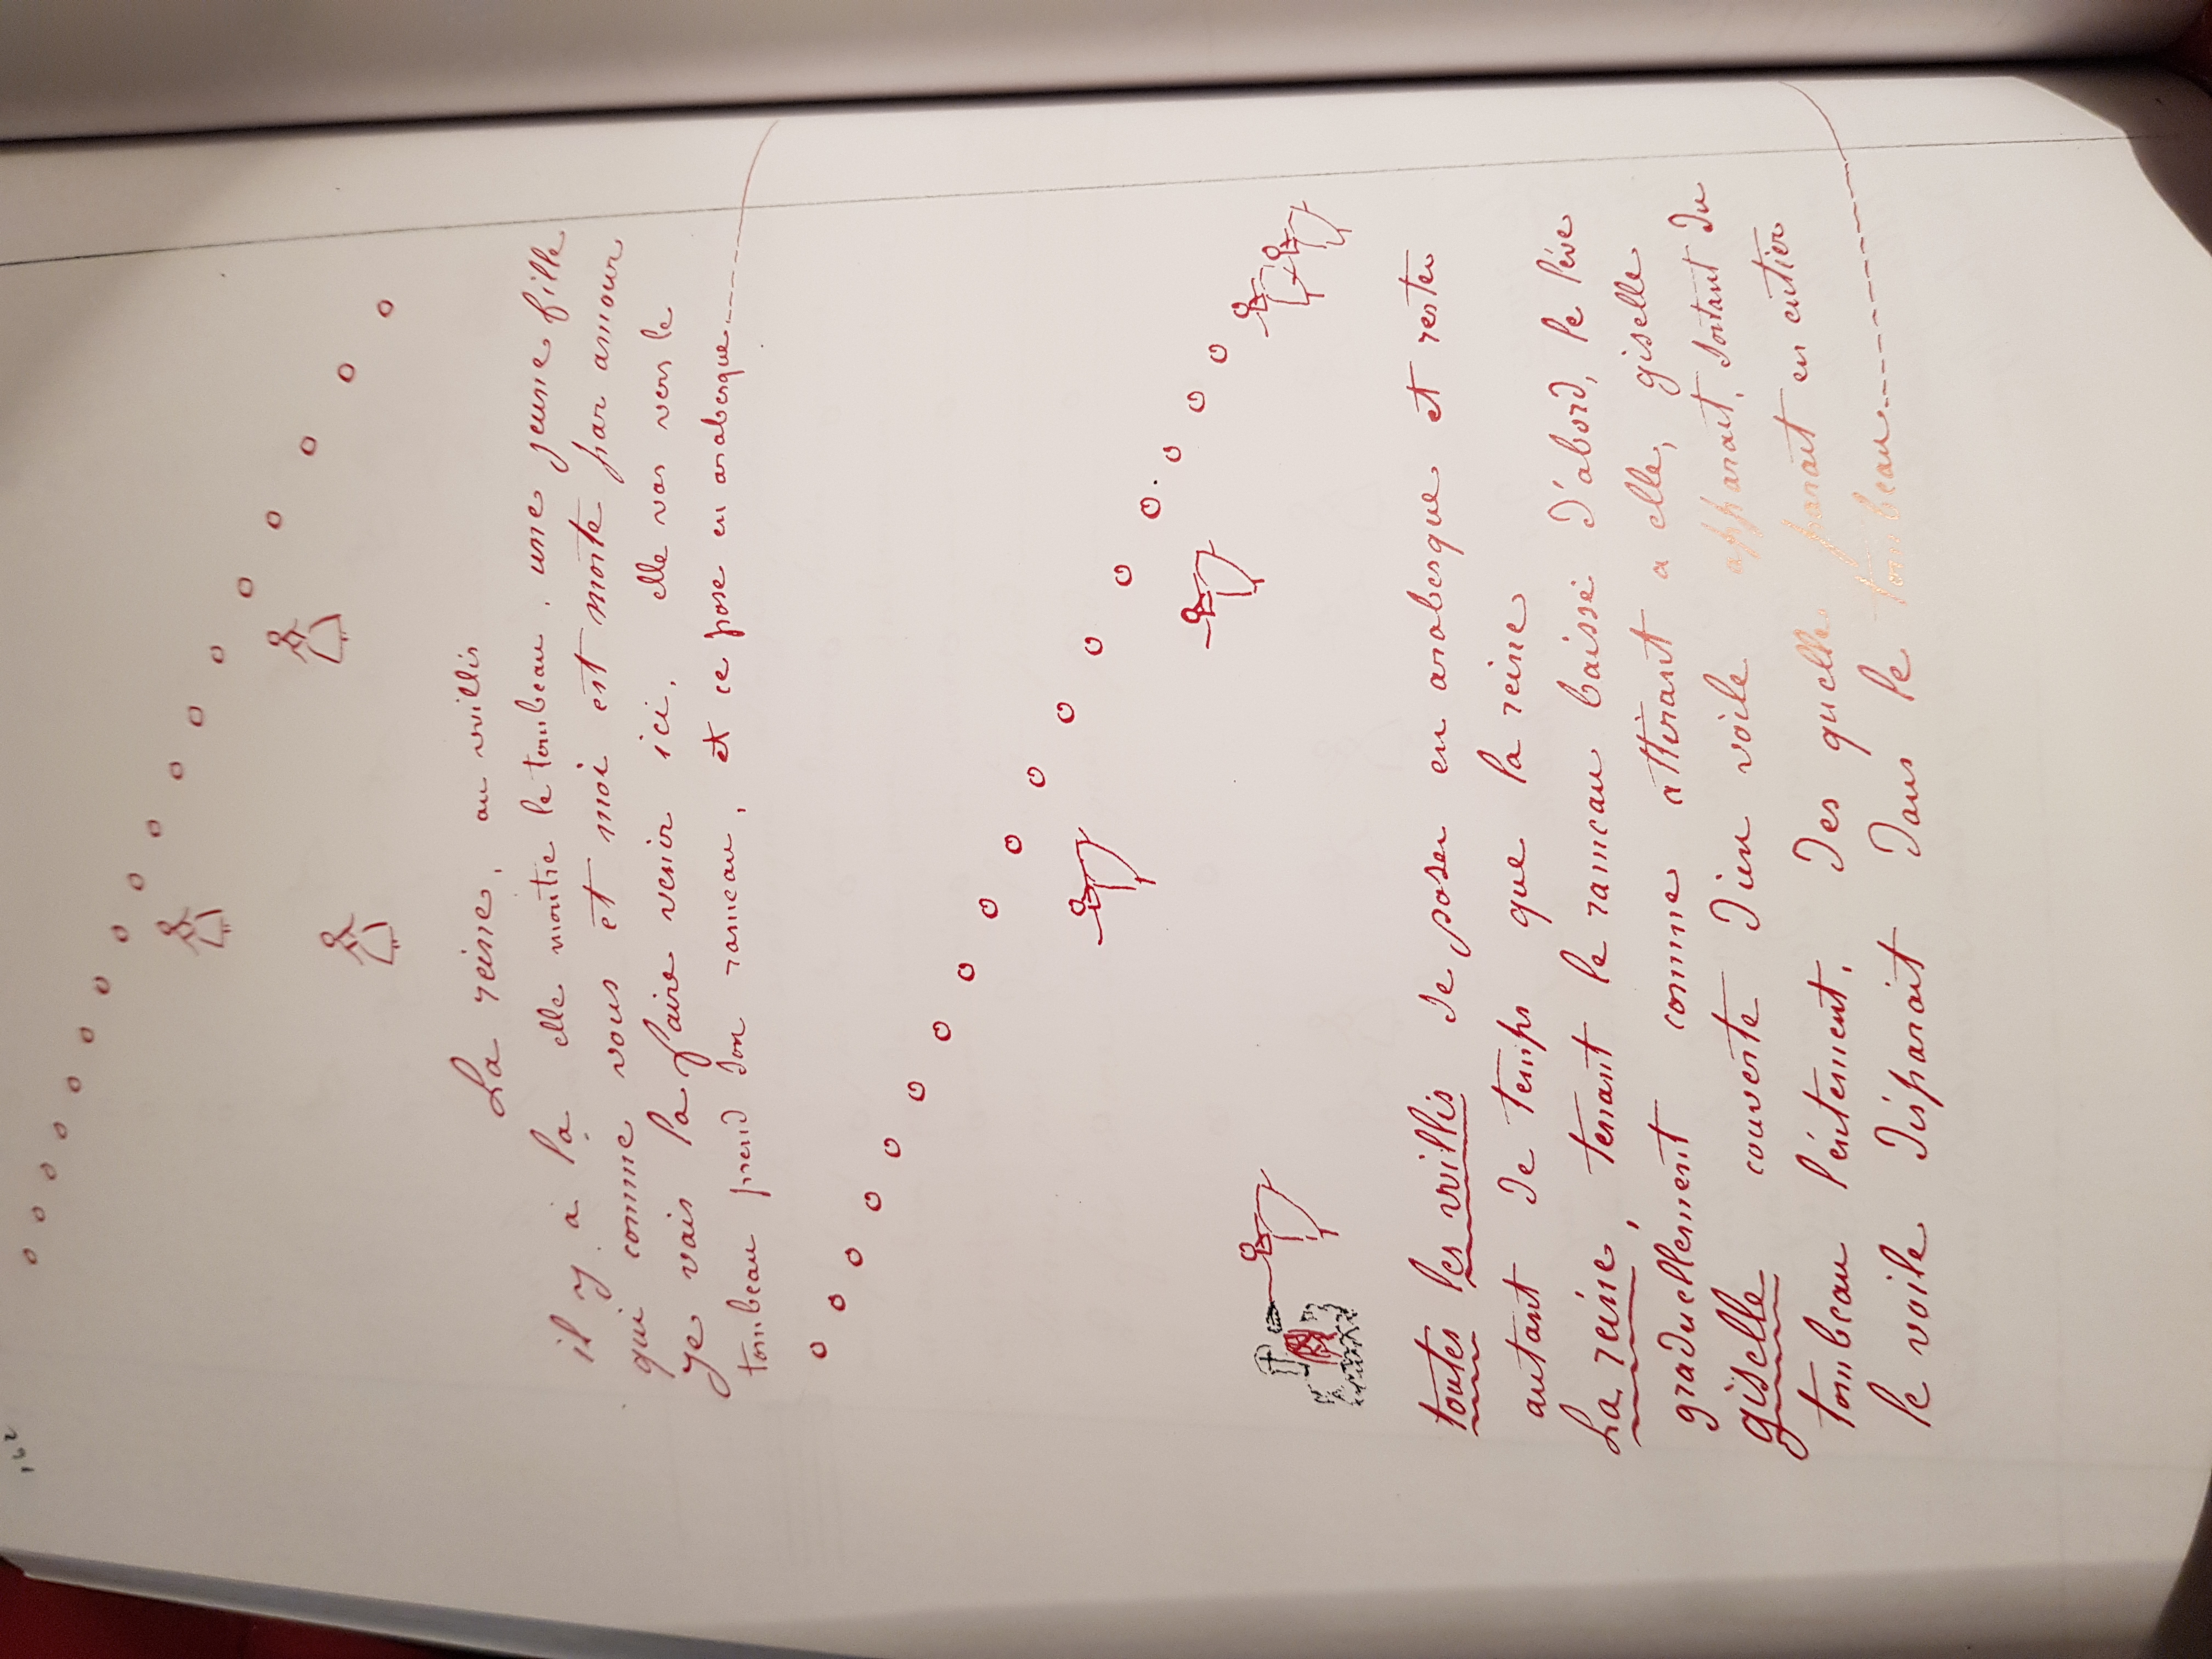 162
La reine, au willis
il y. à là elle montre le tombeau, une jeune fille
qui comme vous et moi est morte par amour
je vais la faire venir ici, elle vas vers le
tombeau prend son rameau, et ce pose en arabesque
toutes les willis se poser en arabesque et rester
autant de temps que la reine
La reine, tenant le rameau baissé d'abord, le lève
graduellement comme attirant a elle, giselle
giselle couverte d'un voile apparait, sortant du
tombeau lentement. des quelle parait en entier
le voile disparait dans le tombeau